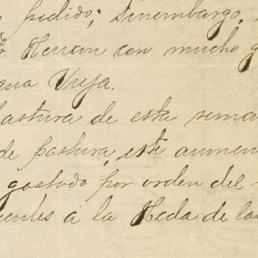 pedido; Sinembargo,
Herran con mucho g
gua Vieja.
Pastura de esta sema
de pastura, este aumen
gastado por orden del
entes a la Hcda de los